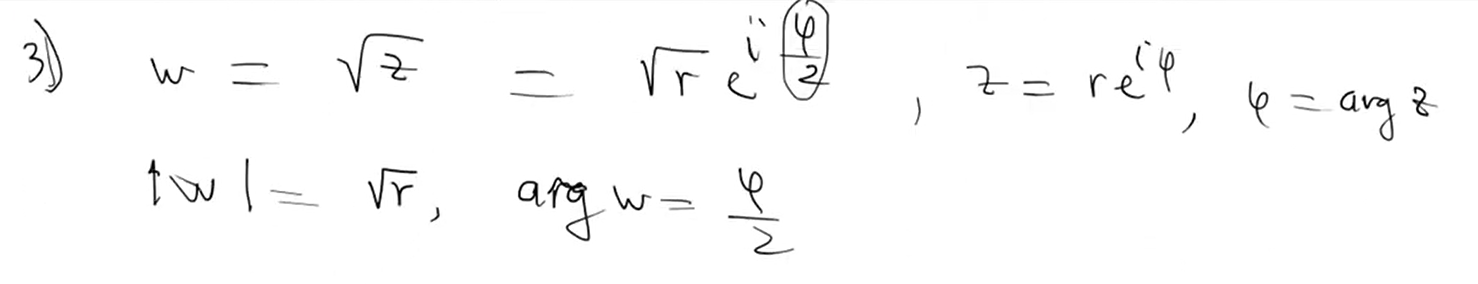 3) w = √z = √r e^{i φ/2} , z = re^{iφ}, φ = arg z
|w| = √r, arg w = φ/2